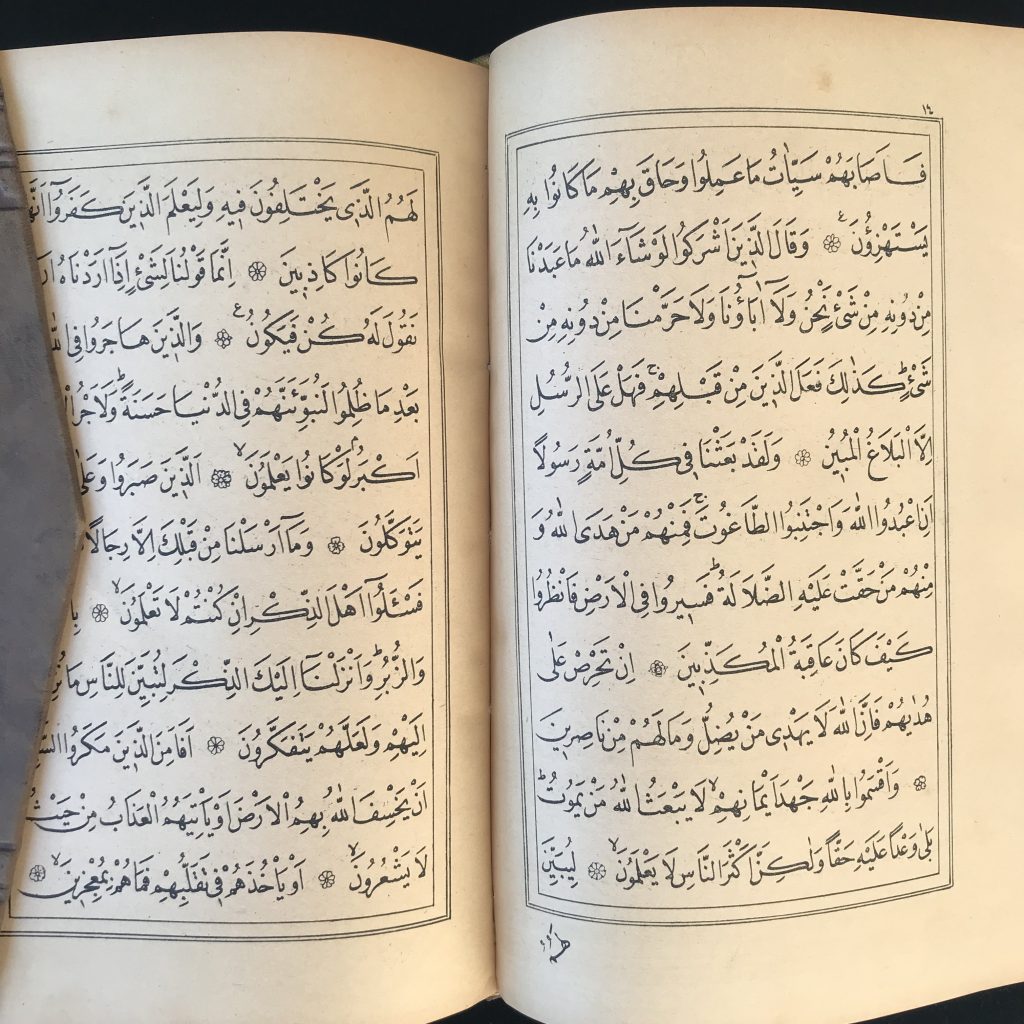 ١٤
فَاَصَابَهُمْ سَيِّاٰتُ مَا عَمِلُوا وَحَاقَ بِهِمْ مَا كَانُوا بِهِ
يَسْتَهْزِؤُنَ ۞ وَقَالَ الَّذِينَ اَشْرَكُوا لَوْ شَآءَ اللّٰهُ مَا عَبَدْنَا
مِنْ دُونِهِ مِنْ شَىْءٍ نَحْنُ وَلَآ اٰبَآؤُنَا وَلَا حَرَّمْنَا مِنْ دُونِهِ مِنْ
شَىْءٍ ط كَذٰلِكَ فَعَلَ الَّذِينَ مِنْ قَبْلِهِمْ ج فَهَلْ عَلَى الرُّسُلِ
اِلَّا الْبَلَاغُ الْمُبِينُ ۞ وَلَقَدْ بَعَثْنَا فِى كُلِّ اُمَّةٍ رَسُولًا
اَنِ اعْبُدُوا اللّٰهَ وَاجْتَنِبُوا الطَّاغُوتَ ج فَمِنْهُمْ مَنْ هَدَى اللّٰهُ وَ
مِنْهُمْ مَنْ حَقَّتْ عَلَيْهِ الضَّلَالَةُ ط فَسِيرُوا فِى الْاَرْضِ فَانْظُرُوا
كَيْفَ كَانَ عَاقِبَةُ الْمُكَذِّبِينَ ۞ اِنْ تَحْرِصْ عَلٰى
هُدٰيهُمْ فَاِنَّ اللّٰهَ لَا يَهْدِى مَنْ يُضِلُّ وَمَا لَهُمْ مِنْ نَاصِرِينَ
۞ وَاَقْسَمُوا بِاللّٰهِ جَهْدَ اَيْمَانِهِمْ لا لَا يَبْعَثُ اللّٰهُ مَنْ يَمُوتُ ط
بَلٰى وَعْدًا عَلَيْهِ حَقًّا وَلٰكِنَّ اَكْثَرَ النَّاسِ لَا يَعْلَمُونَ لا ۞ لِيُبَيِّنَ
لهم
لَهُمُ الَّذِى يَخْتَلِفُونَ فِيهِ وَلِيَعْلَمَ الَّذِينَ كَفَرُوٓا اَنَّهُ
كَانُوا كَاذِبِينَ ۞ اِنَّمَا قَوْلُنَا لِشَىْءٍ اِذَآ اَرَدْنَاهُ اَنْ
نَقُولَ لَهُ كُنْ فَيَكُونُ ع ۞ وَالَّذِينَ هَاجَرُوا فِى اللّٰهِ
بَعْدِ مَا ظُلِمُوا لَنُبَوِّئَنَّهُمْ فِى الدُّنْيَا حَسَنَةً ط وَلَاَجْرُ
اَكْبَرُ م لَوْ كَانُوا يَعْلَمُونَ لا ۞ اَلَّذِينَ صَبَرُوا وَعَلٰى
يَتَوَكَّلُونَ ۞ وَمَآ اَرْسَلْنَا مِنْ قَبْلِكَ اِلَّا رِجَالًا
فَسْئَلُوٓا اَهْلَ الذِّكْرِ اِنْ كُنْتُمْ لَا تَعْلَمُونَ لا ۞
وَالزُّبُرِ ط وَاَنْزَلْنَآ اِلَيْكَ الذِّكْرَ لِتُبَيِّنَ لِلنَّاسِ مَا نُزِّلَ
اِلَيْهِمْ وَلَعَلَّهُمْ يَتَفَكَّرُونَ ۞ اَفَاَمِنَ الَّذِينَ مَكَرُوا
اَنْ يَخْسِفَ اللّٰهُ بِهِمُ الْاَرْضَ اَوْ يَاْتِيَهُمُ الْعَذَابُ مِنْ حَيْثُ
لَا يَشْعُرُونَ لا ۞ اَوْ يَاْخُذَهُمْ فِى تَقَلُّبِهِمْ فَمَا هُمْ بِمُعْجِزِينَ لا ۞